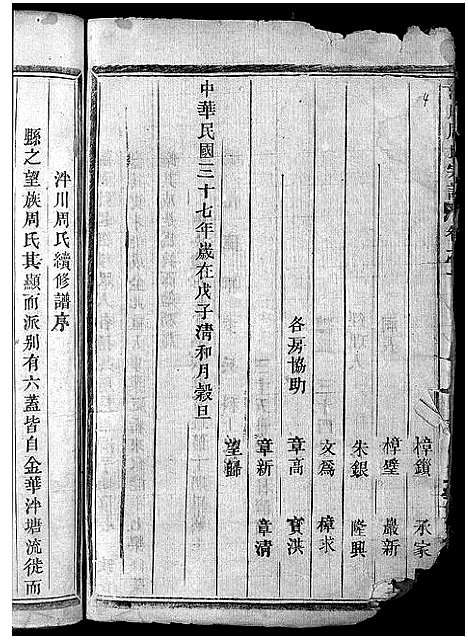 樟鎖　承家
樟璧　嚴新
朱銀　隆興
文為　樟求
各房協助　章高　寳洪
章新　章清
望歸
中華民國三十七年歲在戊子清和月穀旦
泮川周氏續修譜序
縣之望族周氏其顯而派别有六蓋皆自金華泮塘流徙而